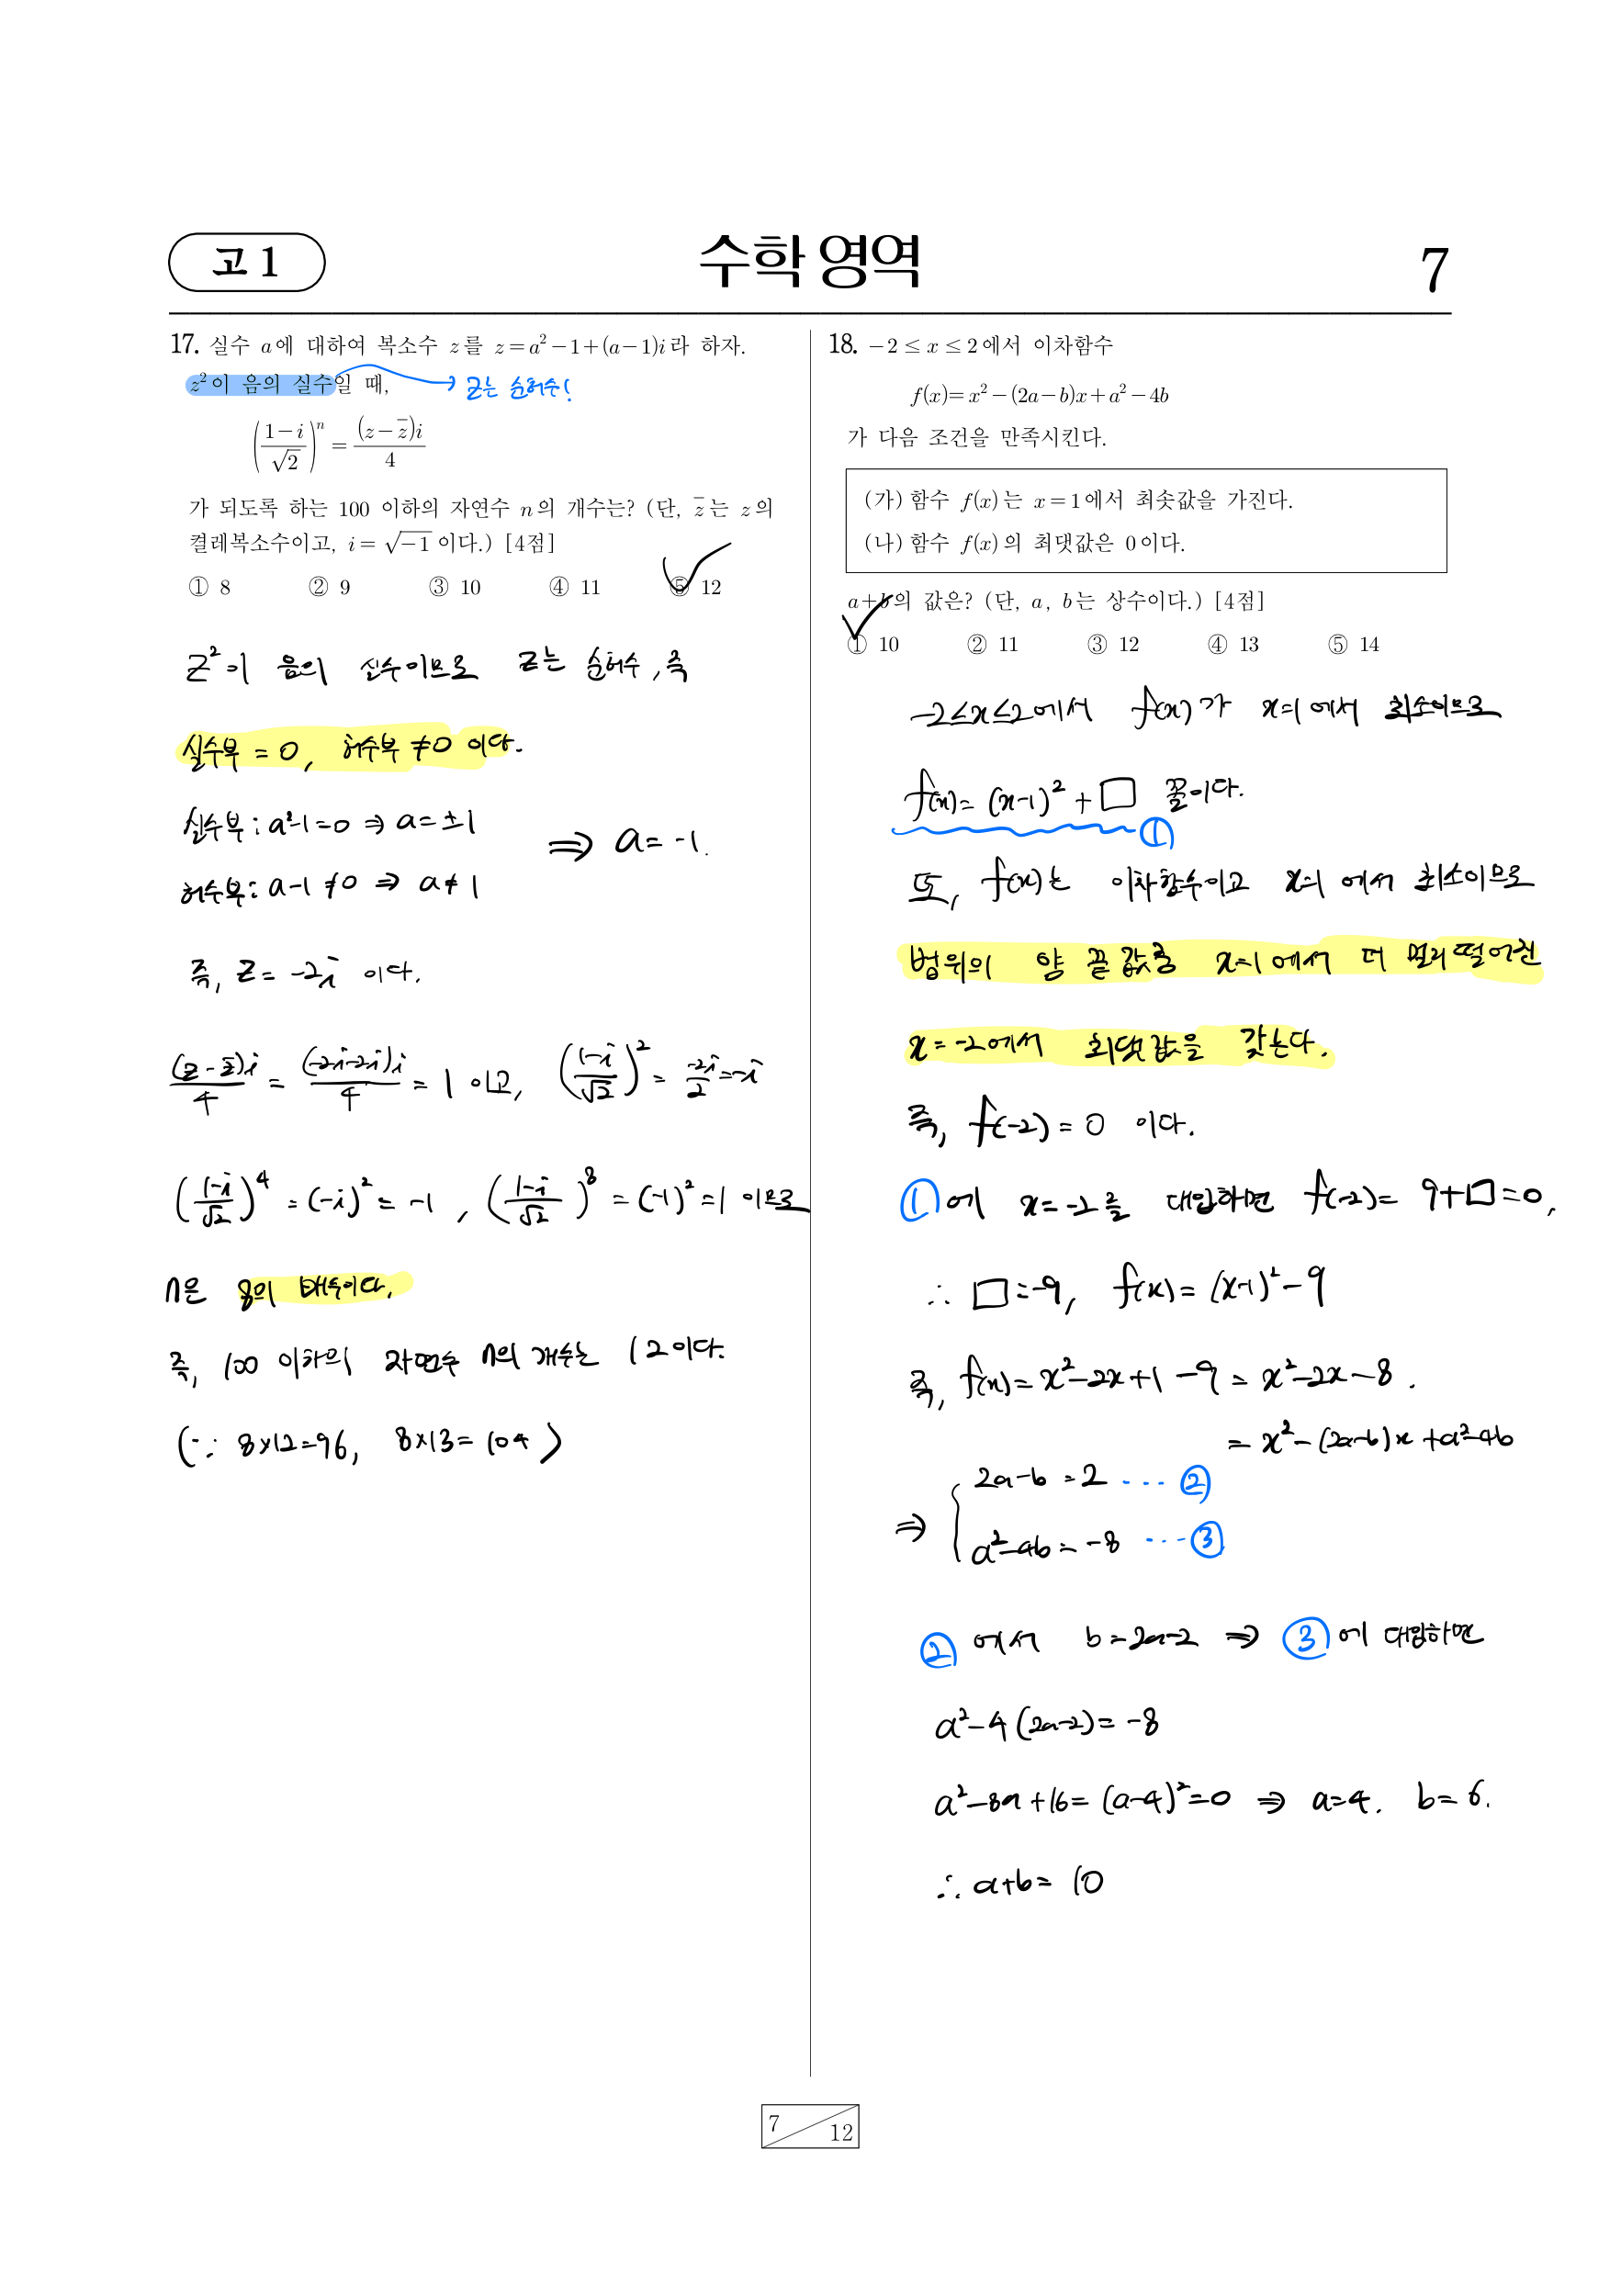 고 1
수학 영역
7
17. 실수 a에 대하여 복소수 z를 z=a²-1+(a-1)i라 하자.
z²이 음의 실수일 때, → z는 순허수!
((1-i)/√2)ⁿ = (z-z̄)i/4
가 되도록 하는 100 이하의 자연수 n의 개수는? (단, z̄는 z의
켤레복소수이고, i=√-1 이다.) [4점]
① 8 ② 9 ③ 10 ④ 11 ⑤ 12
z²이 음의 실수이므로 z는 순허수, 즉
실수부 = 0, 허수부 ≠0 이다.
실수부 : a²-1=0 ⇒ a=±1
⇒ a=-1.
허수부 : a-1≠0 ⇒ a≠1
즉, z= -2i 이다.
(z-z̄)i/4 = (-2i-2i)i/4 = 1 이고, ((1-i)/√2)² = -2i/2 = -i
((1-i)/√2)⁴ = (-i)² = -1 , ((1-i)/√2)⁸ = (-1)² = 1 이므로
n은 8의 배수이다.
즉, 100 이하의 자연수 n의 개수는 12이다.
(∵ 8×12=96, 8×13=104)
18. -2≤x≤2에서 이차함수
f(x)=x²-(2a-b)x+a²-4b
가 다음 조건을 만족시킨다.
(가) 함수 f(x)는 x=1에서 최솟값을 가진다.
(나) 함수 f(x)의 최댓값은 0이다.
a+b의 값은? (단, a, b는 상수이다.) [4점]
① 10 ② 11 ③ 12 ④ 13 ⑤ 14
-2≤x≤2에서 f(x)가 x=1에서 최소이므로
f(x)= (x-1)² + □ 꼴이다.
①
또, f(x)는 이차함수이고 x=1에서 최소이므로
범위의 양 끝 값중 x=1에서 더 멀리 떨어진
x=-2에서 최댓값을 갖는다.
즉, f(-2) = 0 이다.
①에 x=-2를 대입하면 f(-2)= 9+□=0,
∴ □=-9, f(x)= (x-1)²-9
즉, f(x)=x²-2x+1-9 = x²-2x-8.
= x²-(2a-b)x+a²-4b
⇒ { 2a-b =2 ···· ②
a²-4b=-8 ···· ③
② 에서 b=2a-2 ⇒ ③에 대입하면
a²-4(2a-2)=-8
a²-8a+16=(a-4)²=0 ⇒ a=4. b=6.
∴ a+b= 10
7
12